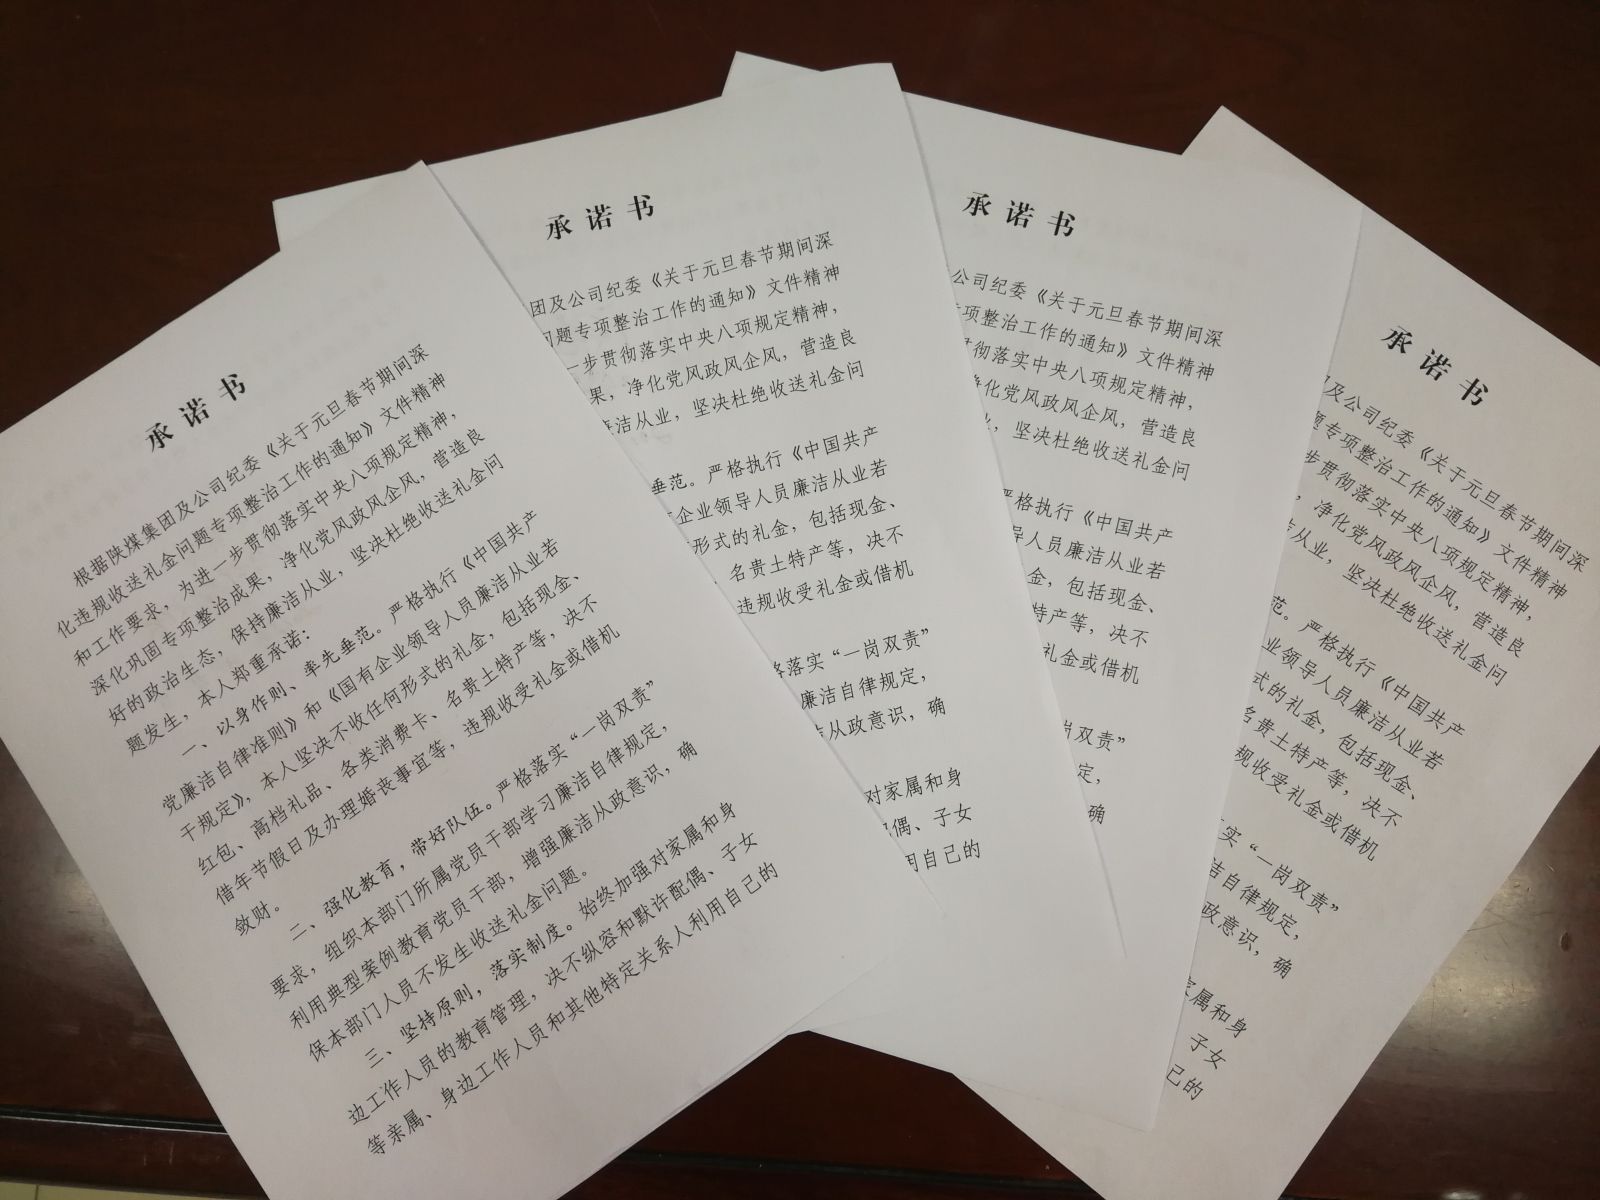 承诺书
根据陕煤集团及公司纪委《关于元旦春节期间深
化违规收送礼金问题专项整治工作的通知》文件精神
和工作要求，为进一步贯彻落实中央八项规定精神，
深化巩固专项整治成果，净化党风政风企风，营造良
好的政治生态，保持廉洁从业，坚决杜绝收送礼金问
题发生，本人郑重承诺：
一、以身作则、率先垂范。严格执行《中国共产
党廉洁自律准则》和《国有企业领导人员廉洁从业若
干规定》，本人坚决不收任何形式的礼金，包括现金、
红包、高档礼品、各类消费卡、名贵土特产等，决不
借年节假日及办理婚丧事宜等，违规收受礼金或借机
敛财。
二、强化教育，带好队伍。严格落实“一岗双责”
要求，组织本部门所属党员干部学习廉洁自律规定，
利用典型案例教育党员干部，增强廉洁从政意识，确
保本部门人员不发生收送礼金问题。
三、坚持原则，落实制度。始终加强对家属和身
边工作人员的教育管理，决不纵容和默许配偶、子女
等亲属、身边工作人员和其他特定关系人利用自己的
承诺书
团及公司纪委《关于元旦春节期间深
问题专项整治工作的通知》文件精神
一步贯彻落实中央八项规定精神，
果，净化党风政风企风，营造良
廉洁从业，坚决杜绝收送礼金问
垂范。严格执行《中国共产
企业领导人员廉洁从业若
形式的礼金，包括现金、
名贵土特产等，决不
违规收受礼金或借机
格落实“一岗双责”
廉洁自律规定，
洁从政意识，确
对家属和身
偶、子女
用自己的
承诺书
公司纪委《关于元旦春节期间深
项整治工作的通知》文件精神
贯彻落实中央八项规定精神，
净化党风政风企风，营造良
业，坚决杜绝收送礼金问
严格执行《中国共产
导人员廉洁从业若
金，包括现金、
特产等，决不
礼金或借机
岗双责”
定，
确
承诺书
及公司纪委《关于元旦春节期间深
题专项整治工作的通知》文件精神
步贯彻落实中央八项规定精神，
，净化党风政风企风，营造良
洁从业，坚决杜绝收送礼金问
范。严格执行《中国共产
业领导人员廉洁从业若
式的礼金，包括现金、
名贵土特产等，决不
规收受礼金或借机
实“一岗双责”
洁自律规定，
政意识，确
家属和身
子女
己的